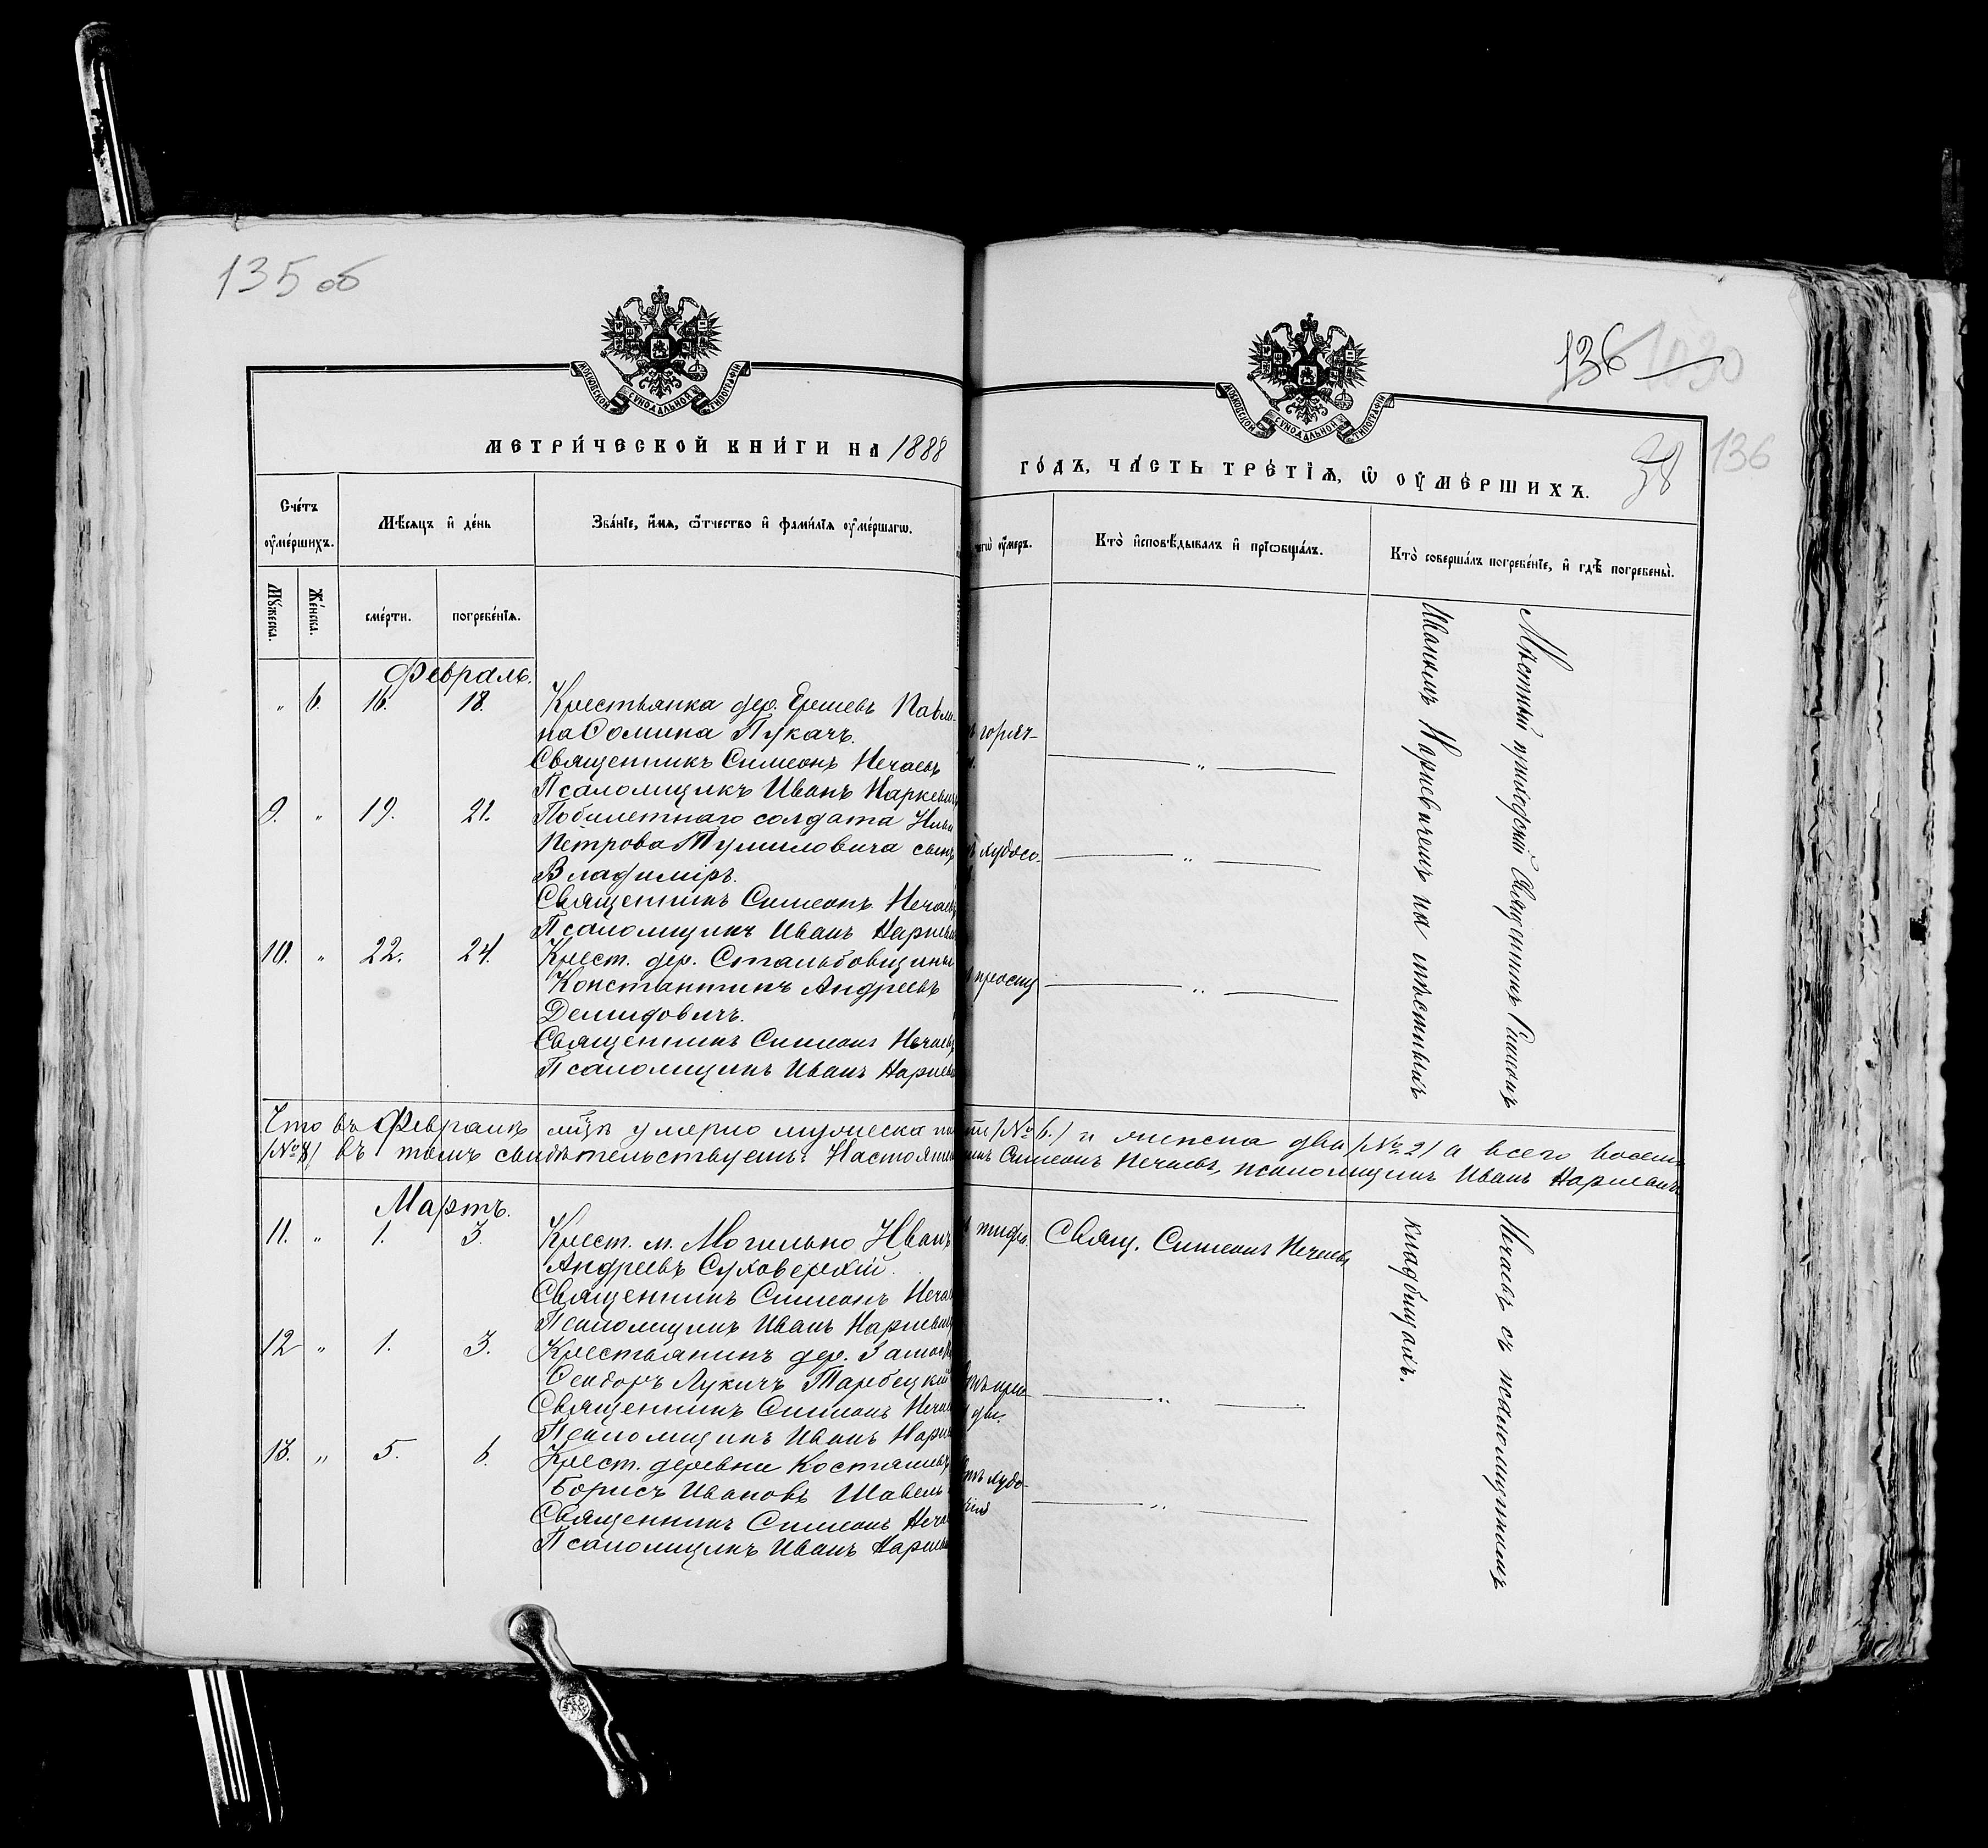 135 об
МОСКОВСКОЙ СѴНОДАЛЬНОЙ ТИПОГРАФІИ
МЕТРИ́ЧЕСКОЙ КНИ́ГИ НА 1888
Сче́тъ оу҆ме́ршихъ.
Мѣсѧцъ и҆ де́нь
Зва́нїе, и҆́мѧ, ѻ҆́тчество и҆ фами́лїѧ оу҆ме́ршагѡ.
Мꙋ́жеска.
Же́нска.
сме́рти.
погребе́нїѧ.
Февраль.
" 6. 16. 18. Крестьянка дер. Ершевъ Павли-
на Ѳомина Пукачъ.
Священникъ Симеонъ Нечаевъ
Псаломщикъ Иванъ Наркевичъ
9. " 19. 21. Побилетнаго солдата Ильи
Петрова Тумиловича сынъ
Владиміръ.
Священникъ Симеонъ Нечаевъ
Псаломщикъ Иванъ Наркеви
10. " 22. 24. Крест. дер. Стальбовщины
Константинъ Андреевъ
Демидовичъ.
Священникъ Симеонъ Нечаевъ
Псаломщикъ Иванъ Наркеви
Что въ Февралѣ мцѣ умерло мужеска
(№ 8) въ томъ свидѣтельствуемъ: Настоятель
Мартъ.
11. " 1. 3. Крест. м. Могильно Иванъ
Андреевъ Суховерхій.
Священникъ Симеонъ Нечае
Псаломщикъ Иванъ Наркевичъ
12 " 1. 3. Крестьянинъ дер.
Ѳеодоръ Лукичъ Тарбецкій
Священникъ Симеонъ Нечае
Псаломщикъ Иванъ Нарке
13. " 5. 6. Крест. деревни Косташи
Борисъ Ивановъ Шавель
Священникъ Симеонъ Неча
Псаломщикъ Иванъ Наркев
136
1030
МОСКОВСКОЙ СѴНОДАЛЬНОЙ ТИПОГРАФІИ
38 136
ГО́ДЪ, ЧА́СТЬ ТРЕ́ТЇѦ, Ѡ҆ ОУ҆МЕ́РШИХЪ.
чегѡ̀ оу҆́меръ.
Кто̀ и҆сповѣ́дывалъ и҆ прїѡбща́лъ.
Кто̀ соверша́лъ погребе́нїе, и҆ гдѣ̀ погребены̀.
горяч-
"
худосо-
"
простуд
"
(№ 6.) и женска два (№ 2) а всего восемь
Симеонъ Нечаевъ, псаломщикъ Иванъ Наркевичъ
тифа. Свящ. Симеонъ Нечаевъ
"
худо-
"
Мѣстный приходскій Священникъ Симеонъ
Нечаевъ съ псаломщикомъ
Иваномъ Наркевичемъ на мѣстныхъ
кладбищахъ.